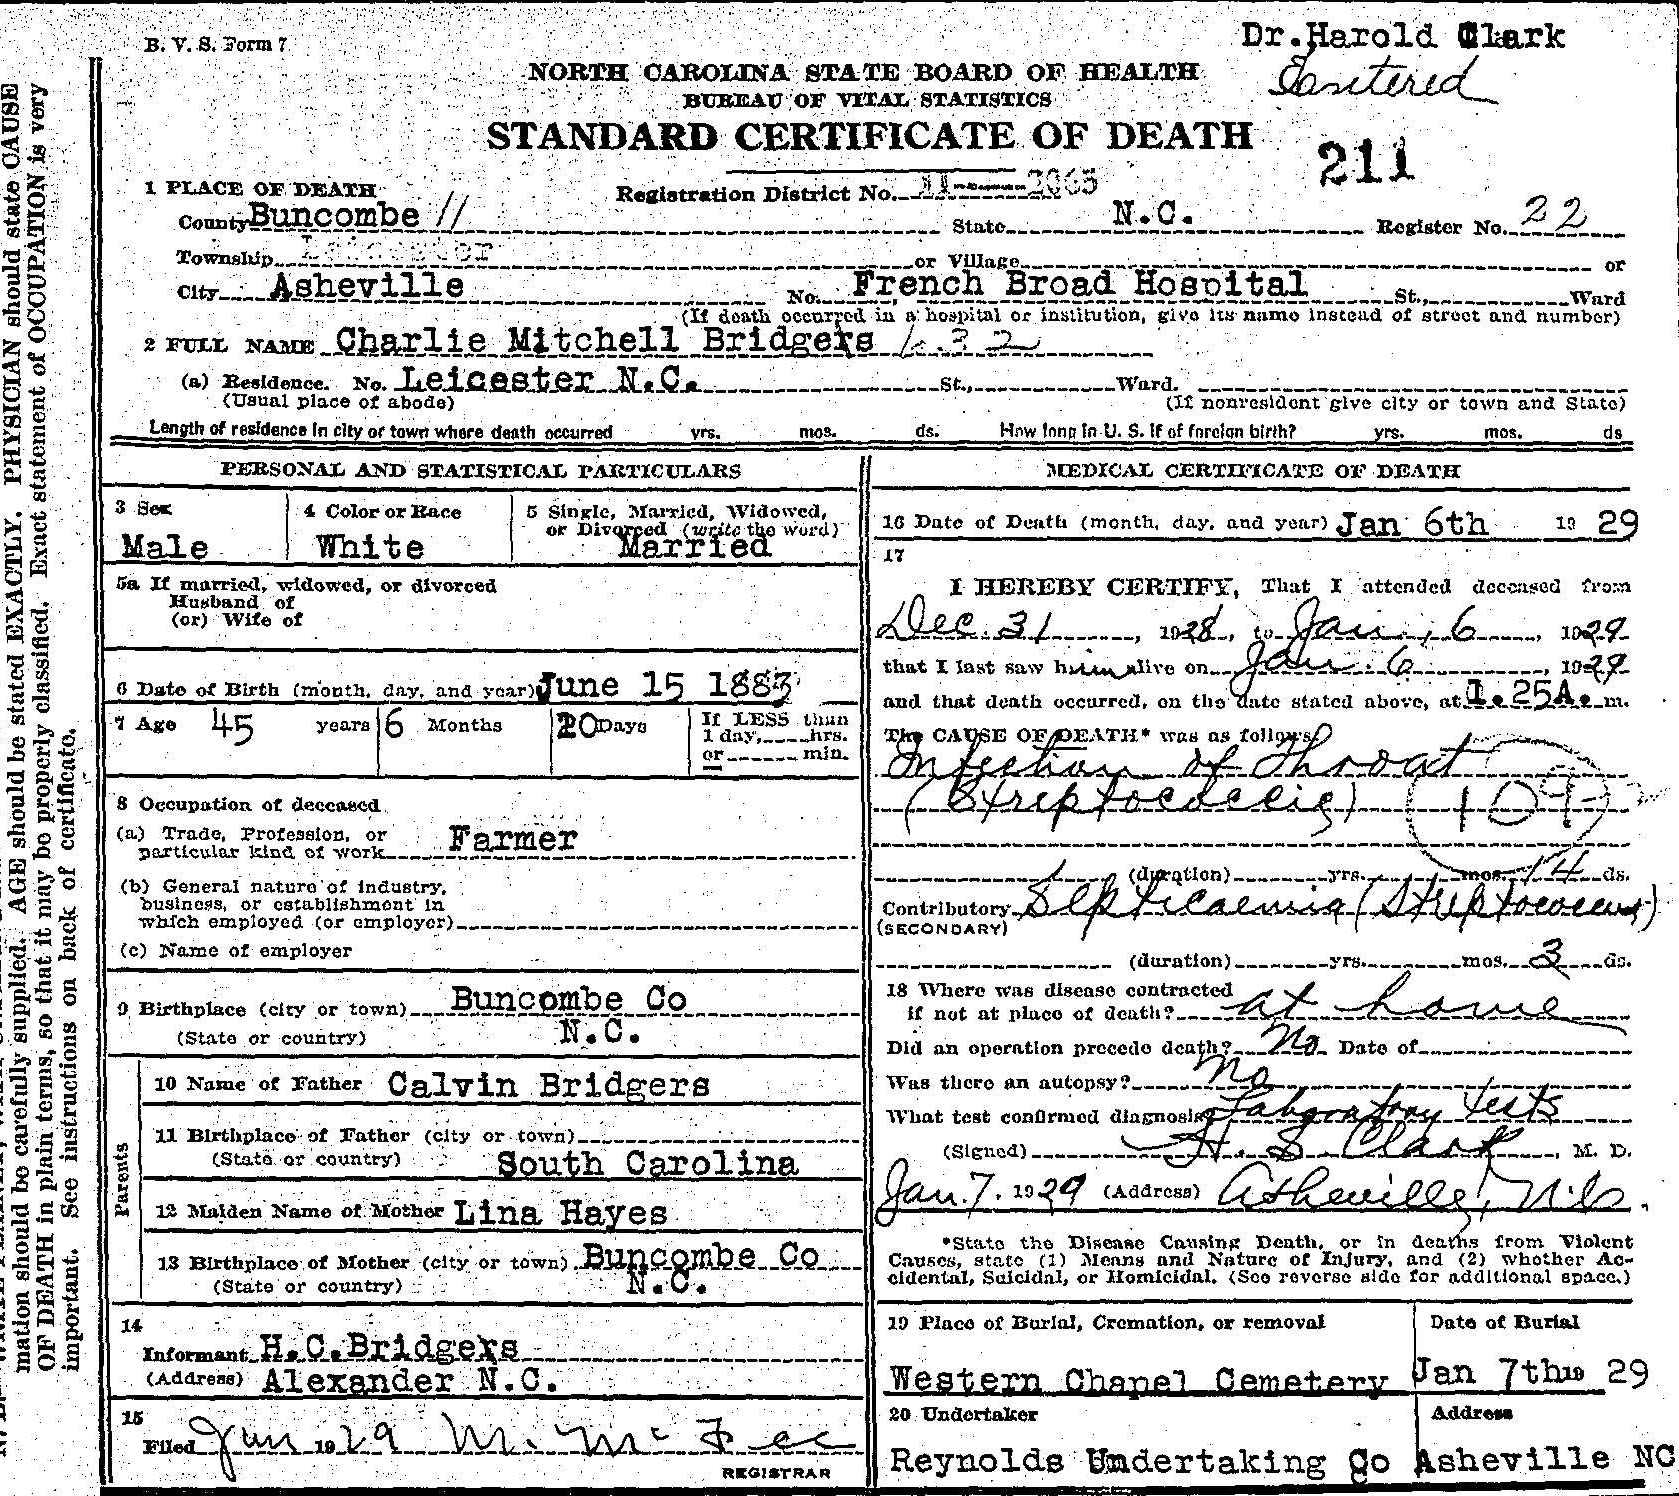 B. V. S. Form 7
Dr.Harold Clark
NORTH CAROLINA STATE BOARD OF HEALTH
BUREAU OF VITAL STATISTICS
STANDARD CERTIFICATE OF DEATH
211
1 PLACE OF DEATH
Registration District No. 11-----2065
County Buncombe 11 State N.C. Register No. 22
Township or Village or
City Asheville No. French Broad Hospital St., Ward
(If death occurred in a hospital or institution, give its name instead of street and number)
2 FULL NAME Charlie Mitchell Bridgers 632
(a) Residence. No. Leicester N.C. St., Ward.
(Usual place of abode) (If nonresident give city or town and State)
Length of residence in city or town where death occurred yrs. mos. ds. How long in U. S. if of foreign birth? yrs. mos. ds
PERSONAL AND STATISTICAL PARTICULARS
3 Sex 4 Color or Race 5 Single, Married, Widowed,
or Divorced (write the word)
Male White Married
5a If married, widowed, or divorced
Husband of
(or) Wife of
6 Date of Birth (month, day, and year) June 15 1883
7 Age 45 years 6 Months 20 Days If LESS than
1 day, hrs.
or min.
8 Occupation of deceased
(a) Trade, Profession, or
particular kind of work Farmer
(b) General nature of industry,
business, or establishment in
which employed (or employer)
(c) Name of employer
9 Birthplace (city or town) Buncombe Co
(State or country) N.C.
Parents
10 Name of Father Calvin Bridgers
11 Birthplace of Father (city or town)
(State or country) South Carolina
12 Maiden Name of Mother Lina Hayes
13 Birthplace of Mother (city or town) Buncombe Co
(State or country) N.C.
14
Informant H.C.Bridgers
(Address) Alexander N.C.
15
Filed Jan 1929 M. McFee
REGISTRAR
MEDICAL CERTIFICATE OF DEATH
16 Date of Death (month, day, and year) Jan 6th 19 29
17
I HEREBY CERTIFY, That I attended deceased from
Dec. 31, 1928, to Jan, 6, 1929
that I last saw him alive on Jan. 6, 1929
and that death occurred, on the date stated above, at 1.25A. m.
The CAUSE OF DEATH* was as follows
Infection of Throat
(Streptococcic) 109
(duration) yrs. mos. 14 ds.
Contributory Septicaemia (Streptococcus)
(SECONDARY)
(duration) yrs. mos. 3 ds.
18 Where was disease contracted
if not at place of death? at home
Did an operation precede death? No Date of
Was there an autopsy? No
What test confirmed diagnosis? Laboratory tests
(Signed) H. S. Clark, M. D.
Jan. 7. 1929 (Address) Asheville, N.C.
*State the Disease Causing Death, or in deaths from Violent
Causes, state (1) Means and Nature of Injury, and (2) whether Ac-
cidental, Suicidal, or Homicidal. (See reverse side for additional space.)
19 Place of Burial, Cremation, or removal Date of Burial
Western Chapel Cemetery Jan 7th 19 29
20 Undertaker Address
Reynolds Undertaking Co Asheville NC
mation should be carefully supplied. AGE should be stated EXACTLY. PHYSICIAN should state CAUSE
OF DEATH in plain terms, so that it may be properly classified. Exact statement of OCCUPATION is very
important. See instructions on back of certificate.